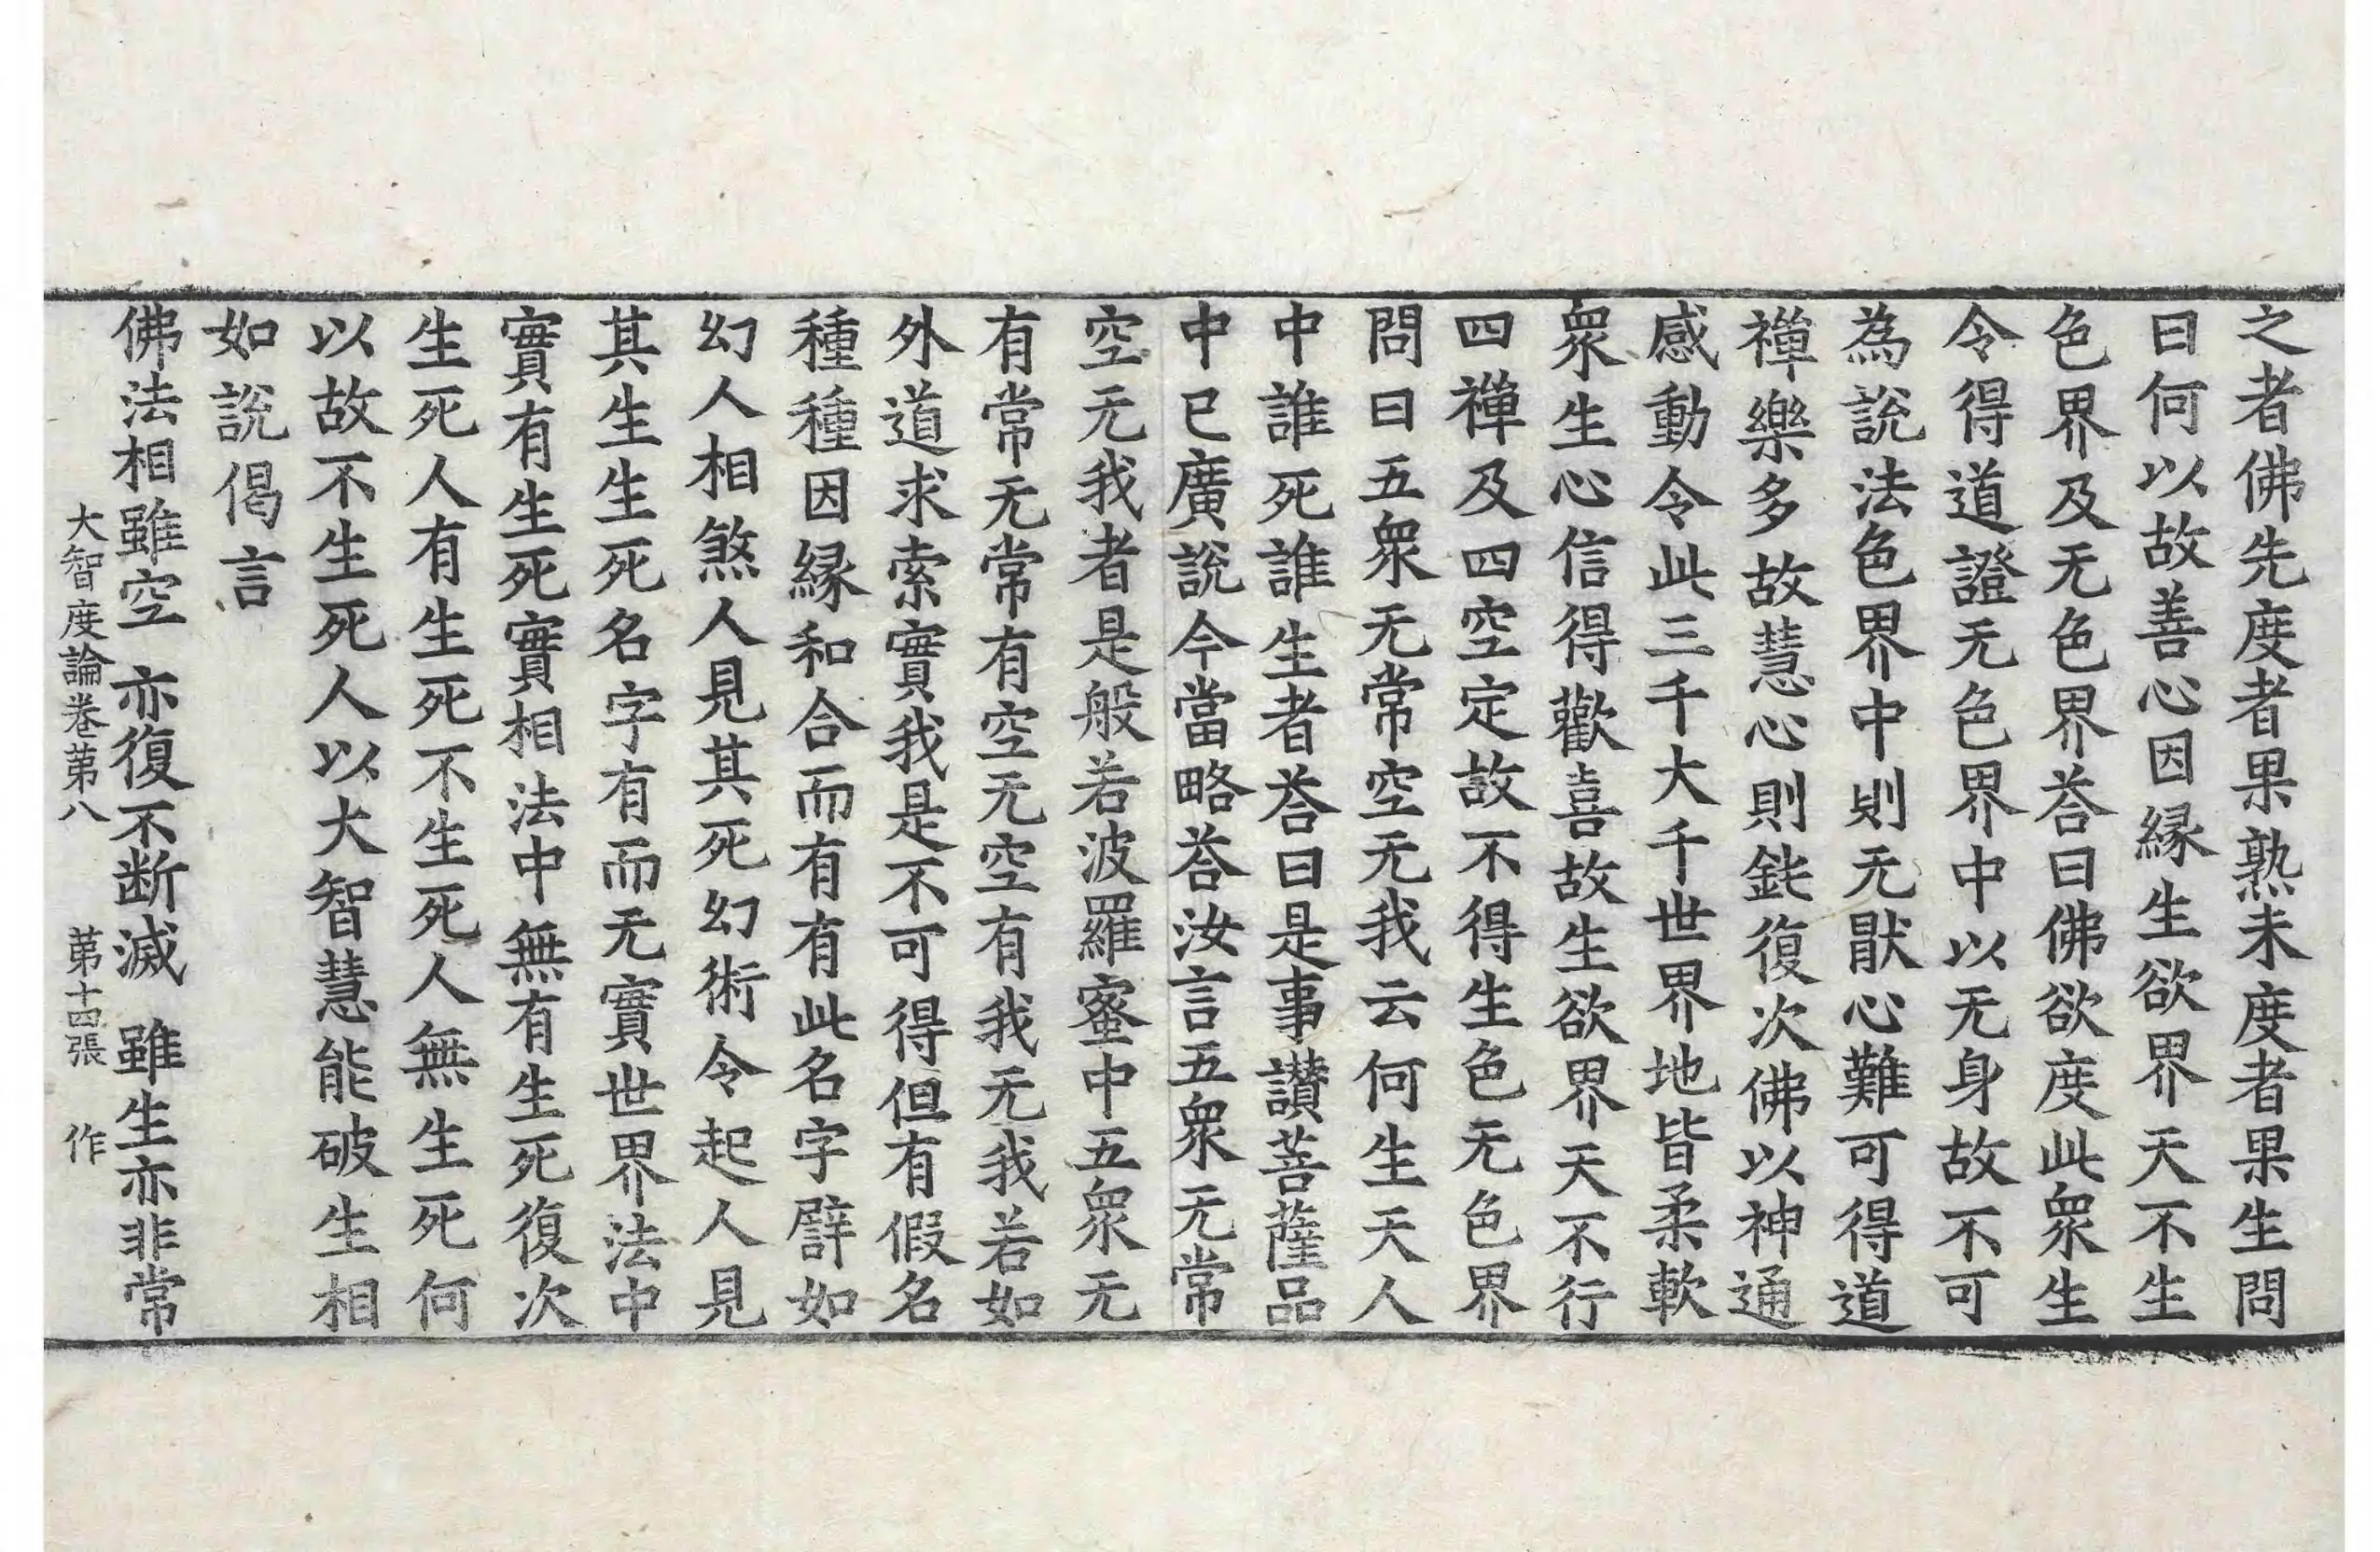 之者佛先度者果熟未度者果生問
曰何以故善心因緣生欲界天不生
色界及无色界荅曰佛欲度此衆生
令得道證无色界中以无身故不可
為說法色界中則无猒心難可得道
禪樂多故慧心則鈍復次佛以神通
感動令此三千大千世界地皆柔軟
衆生心信得歡喜故生欲界天不行
四禪及四空定故不得生色无色界
問曰五衆无常空无我云何生天人
中誰死誰生者荅曰是事讃菩薩品
中已廣說今當略荅汝言五衆无常
空无我者是般若波羅蜜中五衆无
有常无常有空无空有我无我若如
外道求索實我是不可得但有假名
種種因緣和合而有有此名字譬如
幻人相煞人見其死幻術令起人見
其生生死名字有而无實世界法中
實有生死實相法中無有生死復次
生死人有生死不生死人無生死何
以故不生死人以大智慧能破生相
如說偈言
佛法相雖空 亦復不断滅 雖生亦非常
大智度論卷第八 第十四張 作